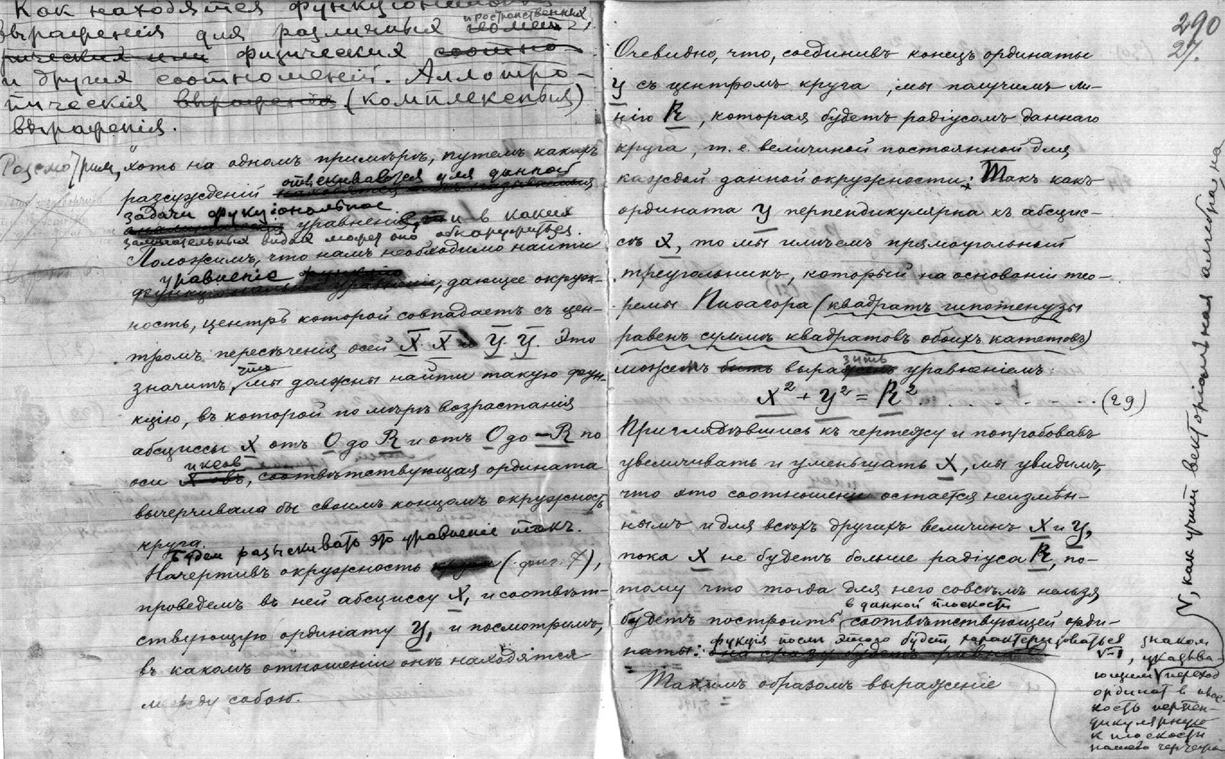 Как находятся функціональныя
выраженія для различныхъ пространственныхъ
рическихъ или физическихъ соотно-
и другихъ соотношеній. Аллотро-
пическія выраженія (комплексныя)
выраженія.
Разсмотримъ, хоть на одномъ примѣрѣ, путемъ какихъ
разсужденій отыскивается для данной
задачи функціональное
уравненіе, и в какихъ
замѣчательныхъ видахъ можетъ оно обнаружиться.
Положимъ, что намъ необходимо найти
уравненіе
дающее окруж-
ность, центръ которой совпадаетъ съ цен-
тромъ пересѣченія осей X X и У У. Это
значитъ, что мы должны найти такую фун-
кцію, въ которой по мѣрѣ возрастанія
абсциссы X отъ O до R и отъ O до –R по
оси иксовъ, соотвѣтствующая ордината
вычерчивала бы своимъ концомъ окружность
круга.
Будем разыскивать это уравненіе такъ.
Начертивъ окружность (фиг. 7),
проведемъ въ ней абсциссу X, и соотвѣт-
ствующую ординату У, и посмотримъ,
въ какомъ отношеніи онѣ находятся
между собою.
290
27.
Очевидно, что, соединивъ конецъ ординаты
У съ центромъ круга, мы получимъ ли-
нію R, которая будетъ радіусомъ даннаго
круга, т. е величиной постоянной для
каждой данной окружности. Такъ какъ
ордината У перпендикулярна къ абсцис-
сѣ X, то мы имѣемъ прямоугольный
треугольникъ, который на основаніи тео-
ремы Пиѳагора (квадратъ гипотенузы
равенъ суммѣ квадратовъ обоихъ катетовъ)
можемъ быть выразить уравненіемъ:
X² + У² = R² . . . . . . . . . (29)
Приглядѣвшись къ чертежу и попробовавъ
увеличивать и уменьшать X, мы увидимъ,
что это соотношеніе остается неизмѣн-
нымъ и для всѣхъ другихъ величинъ X и У,
пока X не будетъ больше радіуса R, по-
тому что тогда для него совсѣмъ нельзя
будетъ построить в данной плоскости соотвѣтствующей орди-
наты: функція послѣ этого будетъ характеризоваться знакомъ
√-1, указыва-
ющимъ переход
ординат в плос-
кость перпен-
дикулярную
к плоскости
нашего чертежа
Такимъ образомъ выраженіе
V, как учит векторіальная алгебра, на